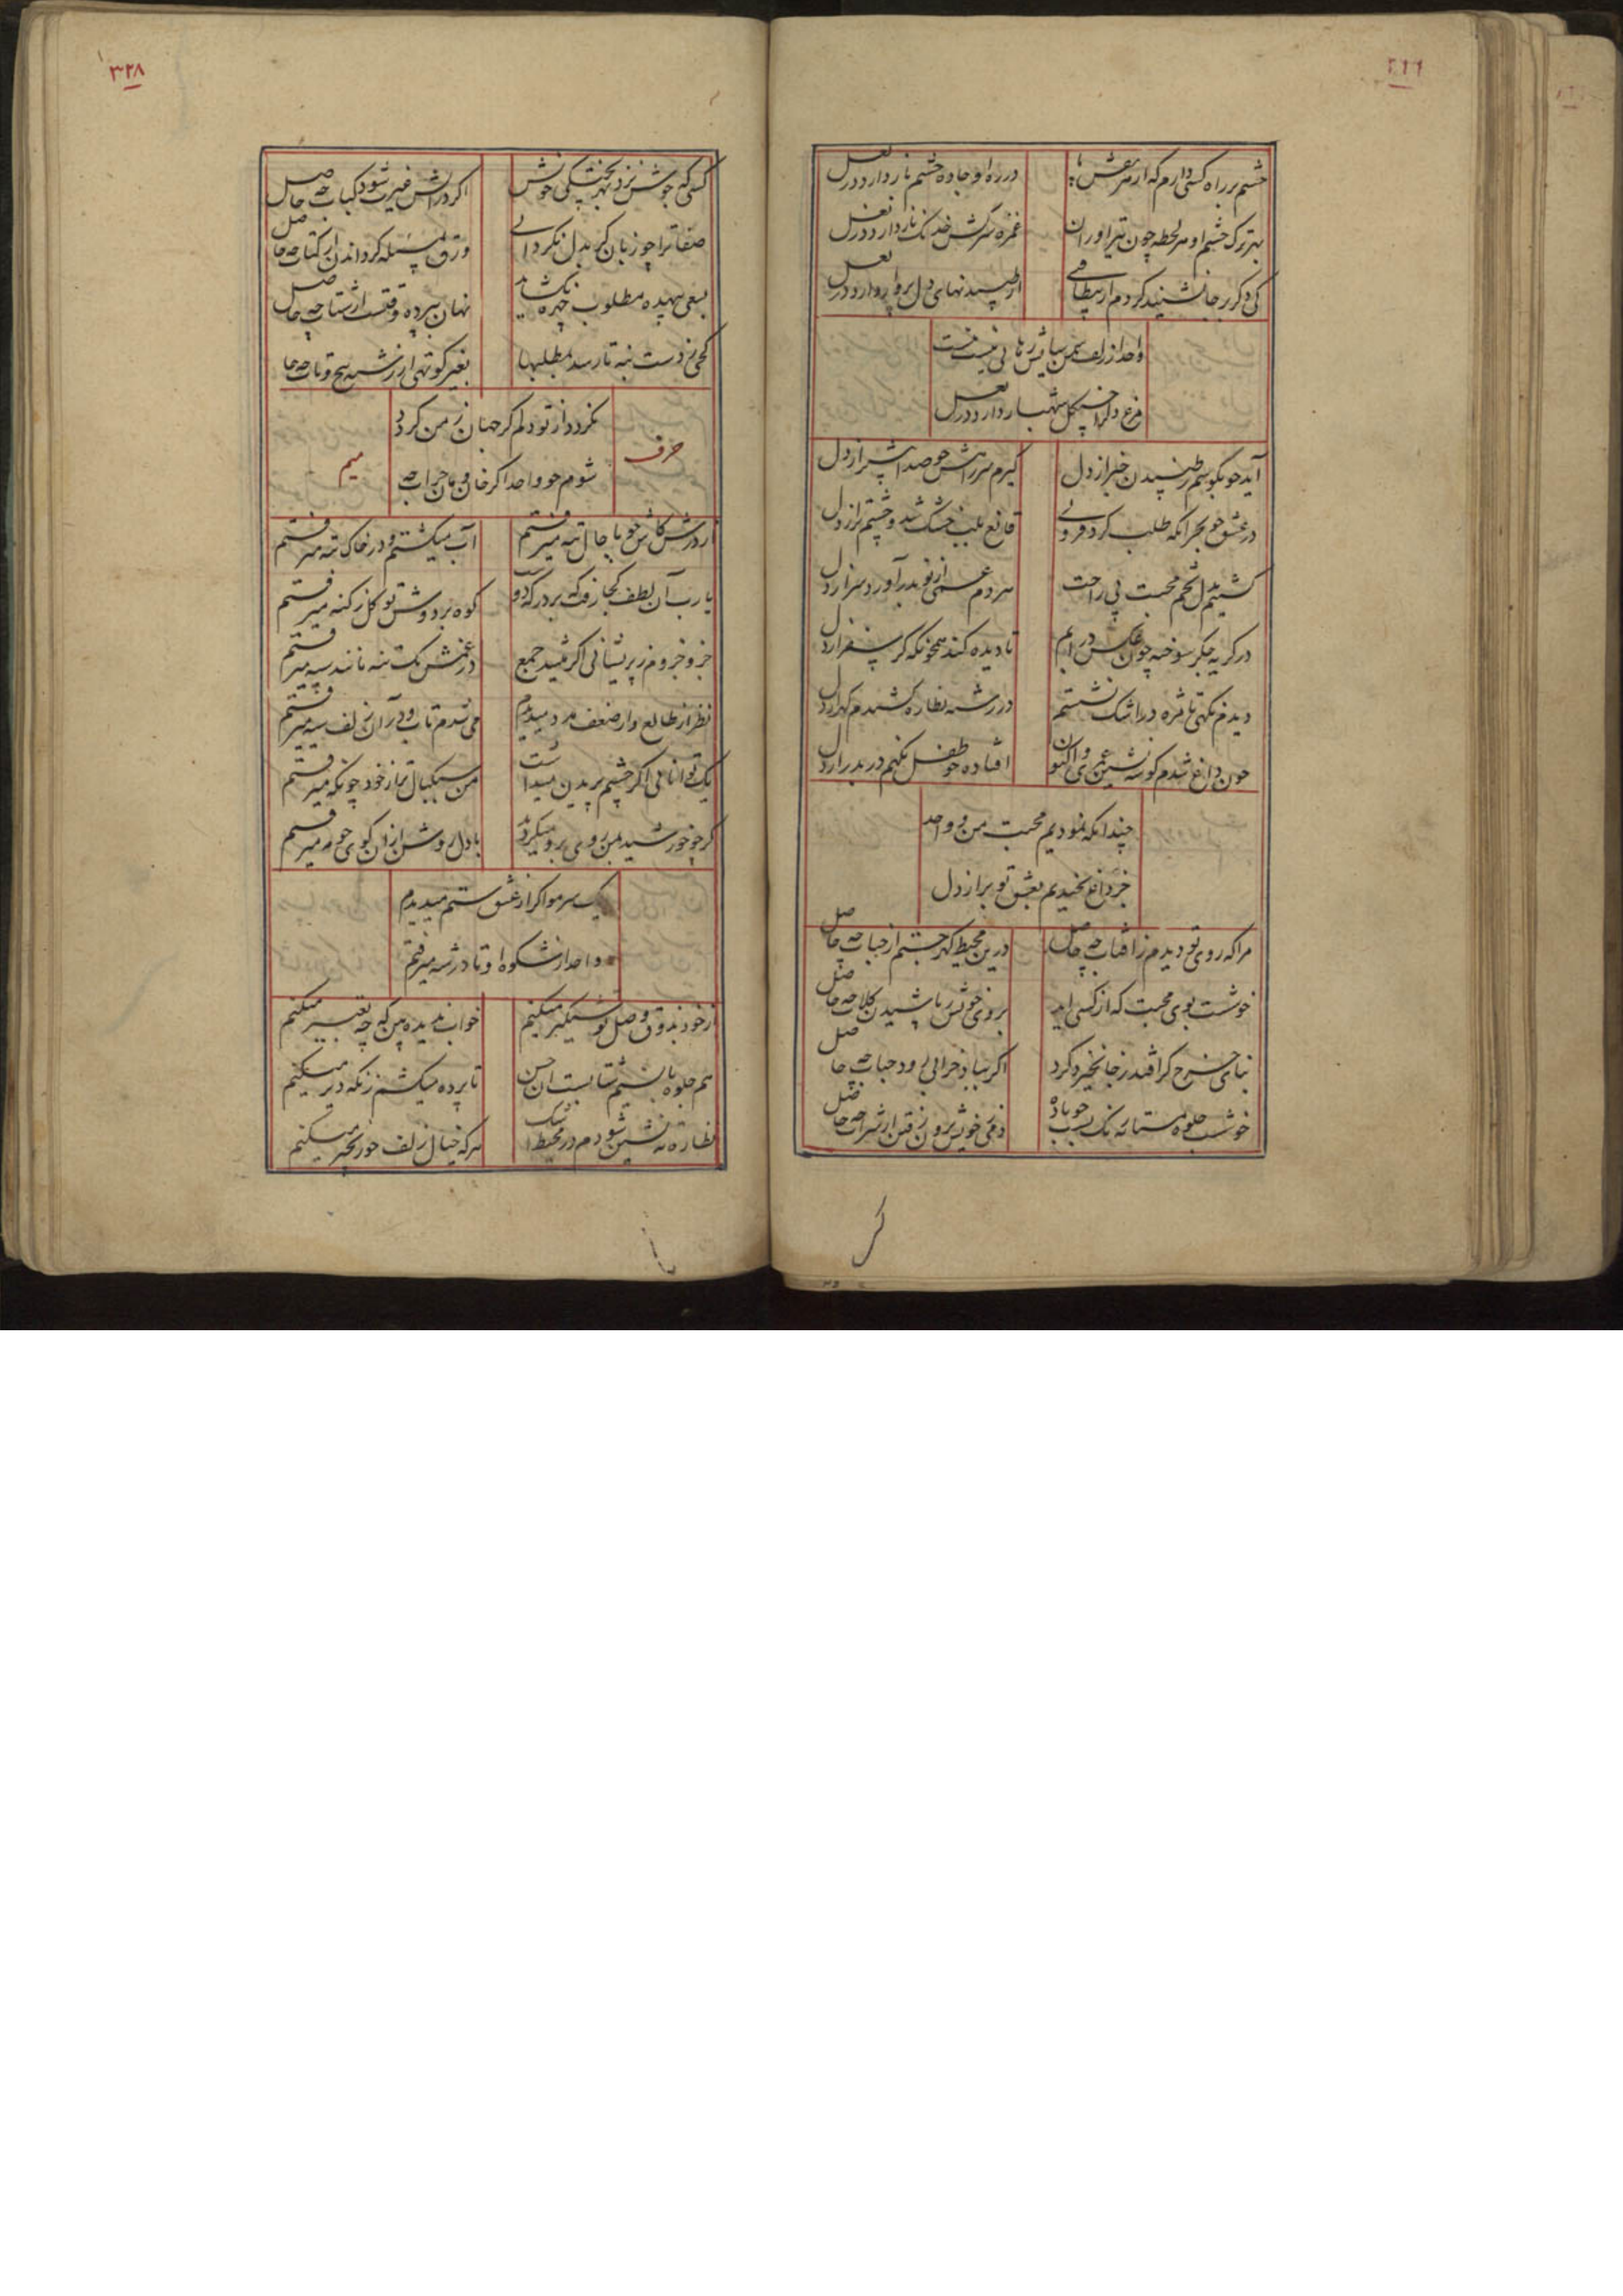 چشم بر راه کسی دارم که از
در ره او جاده چشم باز دارد در بغل
بهر ترک چشم او هر لحظه چون تیر آوران
غمزه سرکش خدنک ناز دارد در بغل
کی دکر برجا نشیند کردم از بیطاقتی
از طپیدنهای دل پرواز دارد در بغل
واحد از زلفش رهائی نیست نیست
مرغ دل را چنکل شهباز دارد در بغل
آید چو بکوشم ز طپیدن خبر از دل
کیرم سر راهش چو صدا پیشتر از دل
در عشق چو بحر آنکه طلب کرد فرو
قانع بلب خشک شد و چشم تر از دل
کشتیم بدل تخم محبت پی راحت
هر دم غمی از تو بدر آورد سر از دل
در کریه جکر سوخته چون عکس در آبم
نادیده کند همچو نکه کر سفر از دل
دیدم نکهی تا مژه در اشک نشستم
در رشته نظاره کشیدم کهر از دل
چون داغ شدم کوشه نشین
افتاده چو طفل نکهم در بدر از دل
چندانکه نمودیم محبت من و واحد
جز داغ نچیدیم بعشق تو بر از دل
مرا که روی تو دیدم ز آفتاب چه حاصل
درین محیط کهر جستم از حباب چه حاصل
خوشست بوی محبت که از کسی آید
بروی خویش پاشیدن کلاب چه حاصل
بنای چرخ کر افتد ز جا نخیزد کرد
اکر بباد خرابی رود حباب چه حاصل
خوشست جلوه مستانه نیک
دمی ز خویش برون رفتن از شراب چه حاصل
کر
۳۲۸
کسی که جوش نزد بهر پختکی خونش
اکر در آتش غیرت شود کباب چه حاصل
صفاتر چو زبان کر بدل نکرد
ورق مسئله کرداندن از کتاب چه حاصل
بسعی بیهده مطلوب چهره نکشاید
نهان بپرده وقتست از شتاب چه حاصل
کجی ز دست بنه تا رسد بمطلبها
بغیر کوتهی از رشته پیچ و تاب چه حاصل
نکردد از تو دلم کر جهان ز من کردد
شوم چو واحد اکر خان و مان خراب چه
حرف
میم
از درش کاش چو با حال تبه میرفتم
آب میکشتم و در خاک سیه میرفتم
یا رب آن لطف کجا رفت که بر درکه
کوه بر دوش تو کل ز کنه میرفتم
جزو جزوم ز پریشانی اکر میشد جمع
در غمش یک تنه مانند سپه میرفتم
نظر از طالع و از ضعف مدد میدیدم
می شدم تاب و در آن زلف سیه میرفتم
یک توانائی اکر چشم پریدن میداشت
من سبکبال تر از خود چو نکه میرفتم
کر چو خورشید بمن روی برو میکردند
با دل روشن از آن کوی چو مه میرفتم
یک سر مو اکر از عشق ستم میدیدم
واحد از شکوه او تا در شه میرفتم
از خود بذوق وصل تو شبکیر میکنم
خواب ندیده بین که چه تعبیر میکنم
هم جلوه با نسیم شتابست آن حسن
تا پرده میکشم ز نکه دیر میکنم
نظاره ته نشین شودم در محیط اشک
هرکه خیال زلف چو زنجیر میکنم